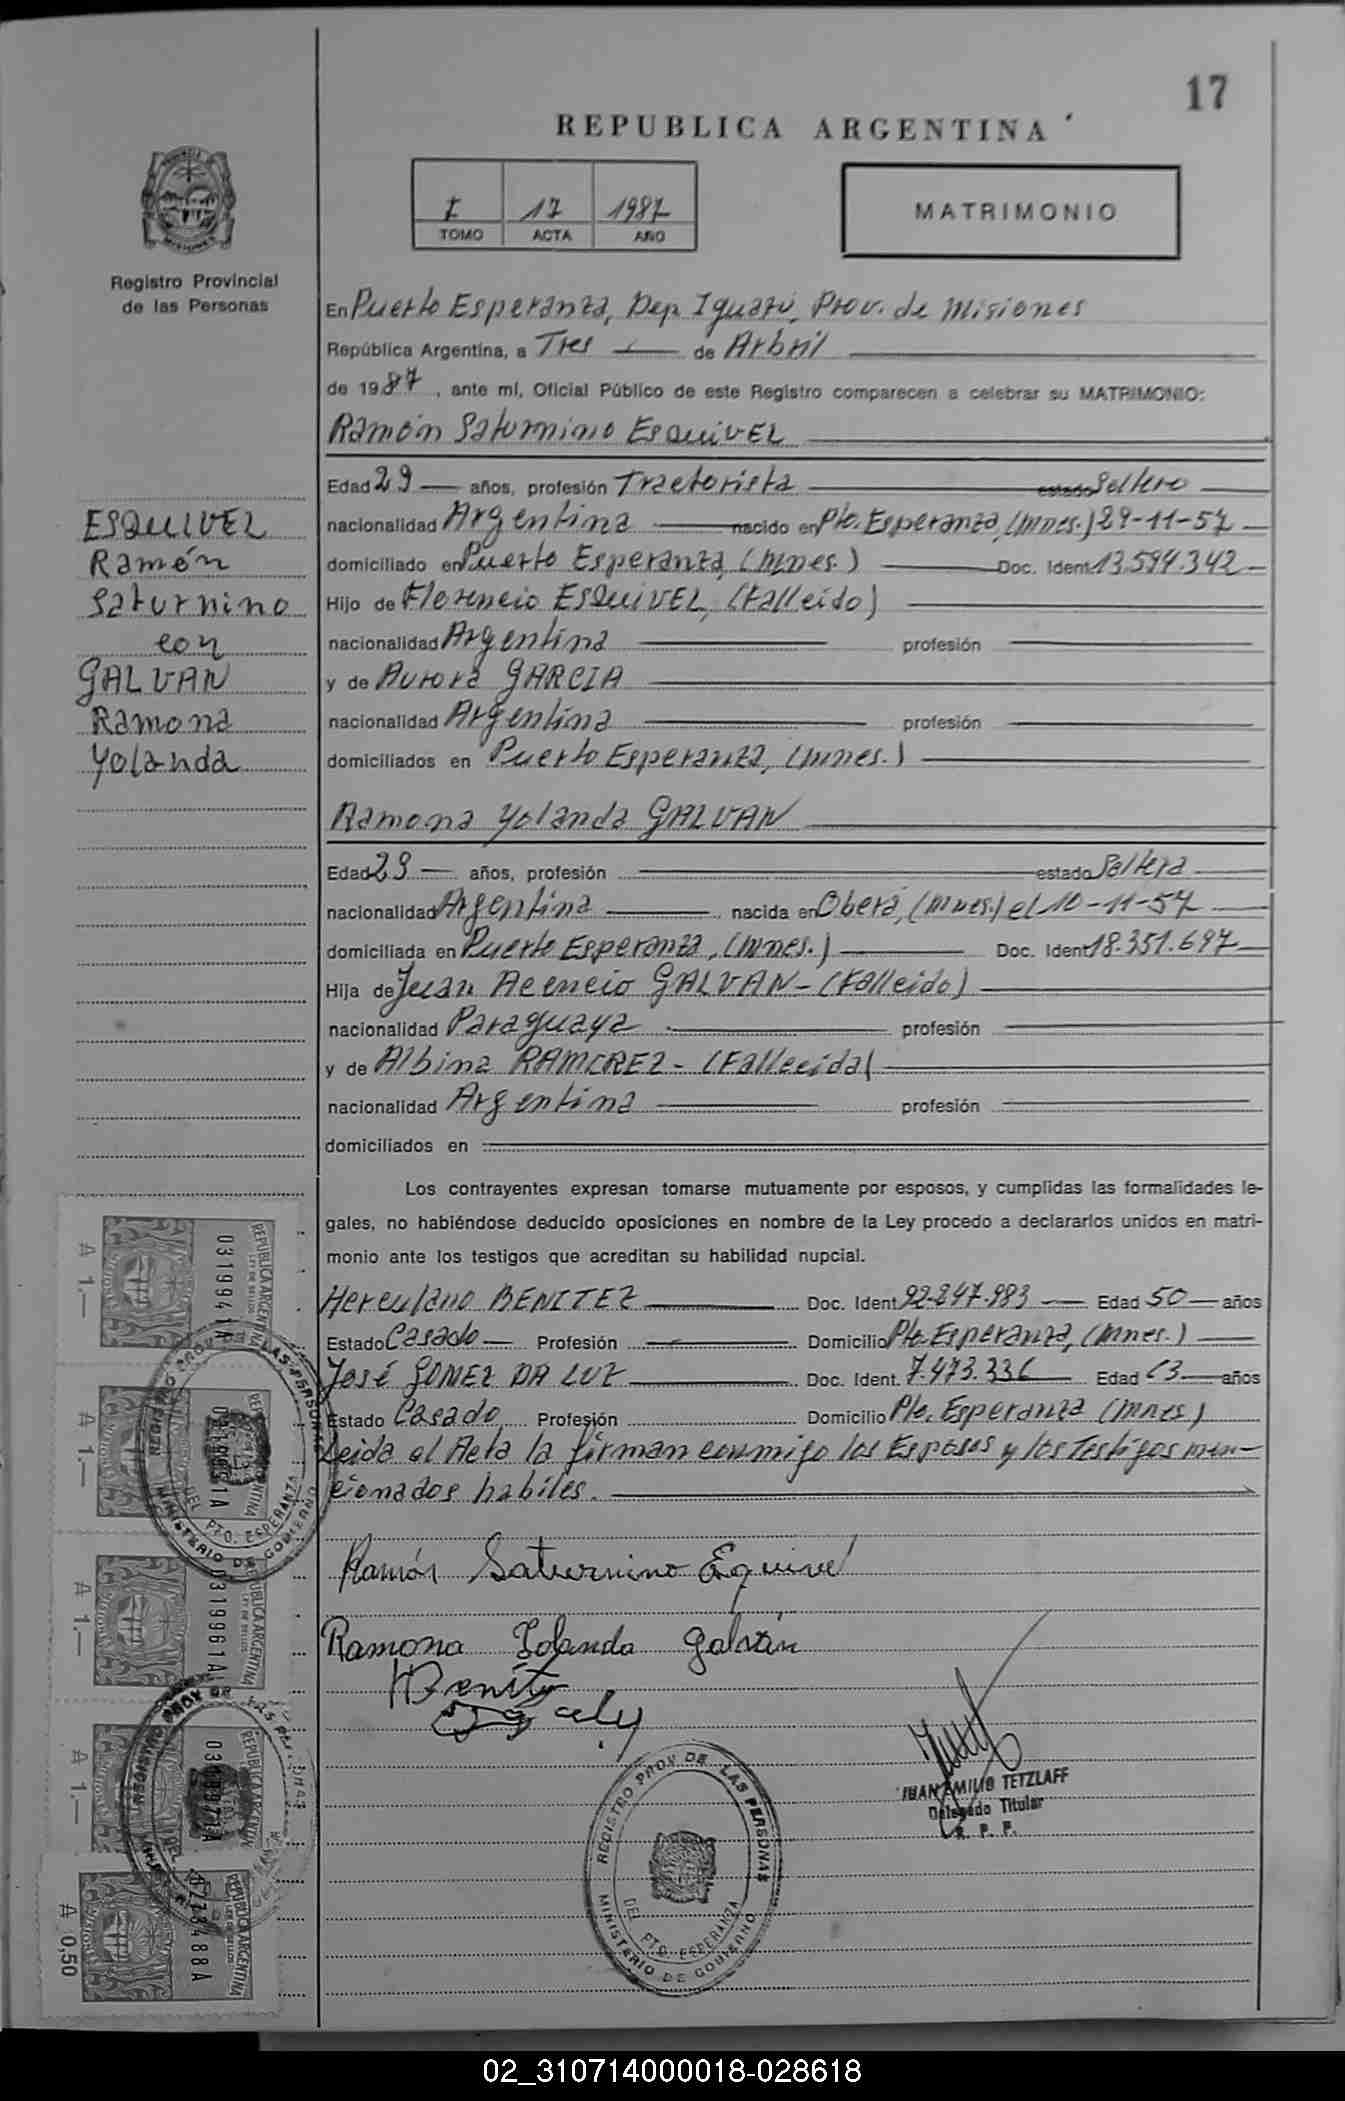 17
REPUBLICA ARGENTINA
I 17 1987
TOMO ACTA AÑO
MATRIMONIO
Registro Provincial
de las Personas
ESQUIVEL
Ramón
Saturnino
con
GALVAN
Ramona
Yolanda
En Puerto Esperanza, Dep. Iguazú, Prov. de Misiones
República Argentina, a Tres de Arbril
de 1987, ante mí, Oficial Público de este Registro comparecen a celebrar su MATRIMONIO:
Ramón Saturnino ESQUIVEL
Edad 29 años, profesión Tractorista estado Soltero
nacionalidad Argentina nacido en Pto. Esperanza, (Mnes.) 29-11-57
domiciliado en Puerto Esperanza, (Mnes.) Doc. Ident. 13.594.342
Hijo de Florencio ESQUIVEL, (Falleido)
nacionalidad Argentina profesión
y de Aurora GARCIA
nacionalidad Argentina profesión
domiciliados en Puerto Esperanza, (Mnes.)
Ramona Yolanda GALVAN
Edad 29 años, profesión estado Soltera
nacionalidad Argentina nacida en Oberá, (Mnes.) el 10-11-57
domiciliada en Puerto Esperanza, (Mnes.) Doc. Ident. 18.351.697
Hija de Juan Acencio GALVAN - (Falleido)
nacionalidad Paraguaya profesión
y de Albina RAMIREZ - (Fallecida)
nacionalidad Argentina profesión
domiciliados en
Los contrayentes expresan tomarse mutuamente por esposos, y cumplidas las formalidades le-
gales, no habiéndose deducido oposiciones en nombre de la Ley procedo a declararlos unidos en matri-
monio ante los testigos que acreditan su habilidad nupcial.
Herculano BENITEZ Doc. Ident. 92.247.983 Edad 50 años
Estado Casado Profesión Domicilio Pto. Esperanza, (Mnes.)
José GOMEZ DA LUZ Doc. Ident. 7.473.336 Edad 63 años
Estado Casado Profesión Domicilio Pto. Esperanza (Mnes)
Leida el Acta la firman conmigo los Esposos y los Testigos men-
cionados habiles.
Ramón Saturnino Equivel
Ramona Yolanda Galván
HBenítez
JUAN EMILIO TETZLAFF
Delegado Titular
R. P. P.
REGISTRO PROV. DE LAS PERSONAS
DEL PTO. ESPERANZA
MINISTERIO DE GOBIERNO
REPUBLICA ARGENTINA
LEY DE SELLOS
0319941A
A 1.—
REPUBLICA ARGENTINA
A 1.—
REPUBLICA ARGENTINA
LEY DE SELLOS
0319961A
A 1.—
REPUBLICA ARGENTINA
A 1.—
REPUBLICA ARGENTINA
LEY DE SELLOS
A 0,50
REGISTRO PROV. DE LAS PERSONAS
DEL PTO. ESPERANZA
MINISTERIO DE GOBIERNO
REGISTRO PROV. DE LAS PERSONAS
02_310714000018-028618